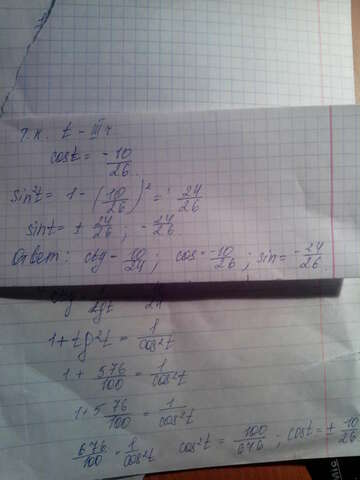 т.к. t - III ч
cos t = - 10/26
sin²t = 1 - (10/26)² = 24/26
sin t = ± 24/26 ; - 24/26
Ответ: ctg - 10/24 ; cos = -10/26 ; sin = -24/26
1 + tg²t = 1/cos²t
1 + 576/100 = 1/cos²t
1 + 5 76/100 = 1/cos²t
676/100 = 1/cos²t cos²t = 100/676 ; cos t = ± 10/26